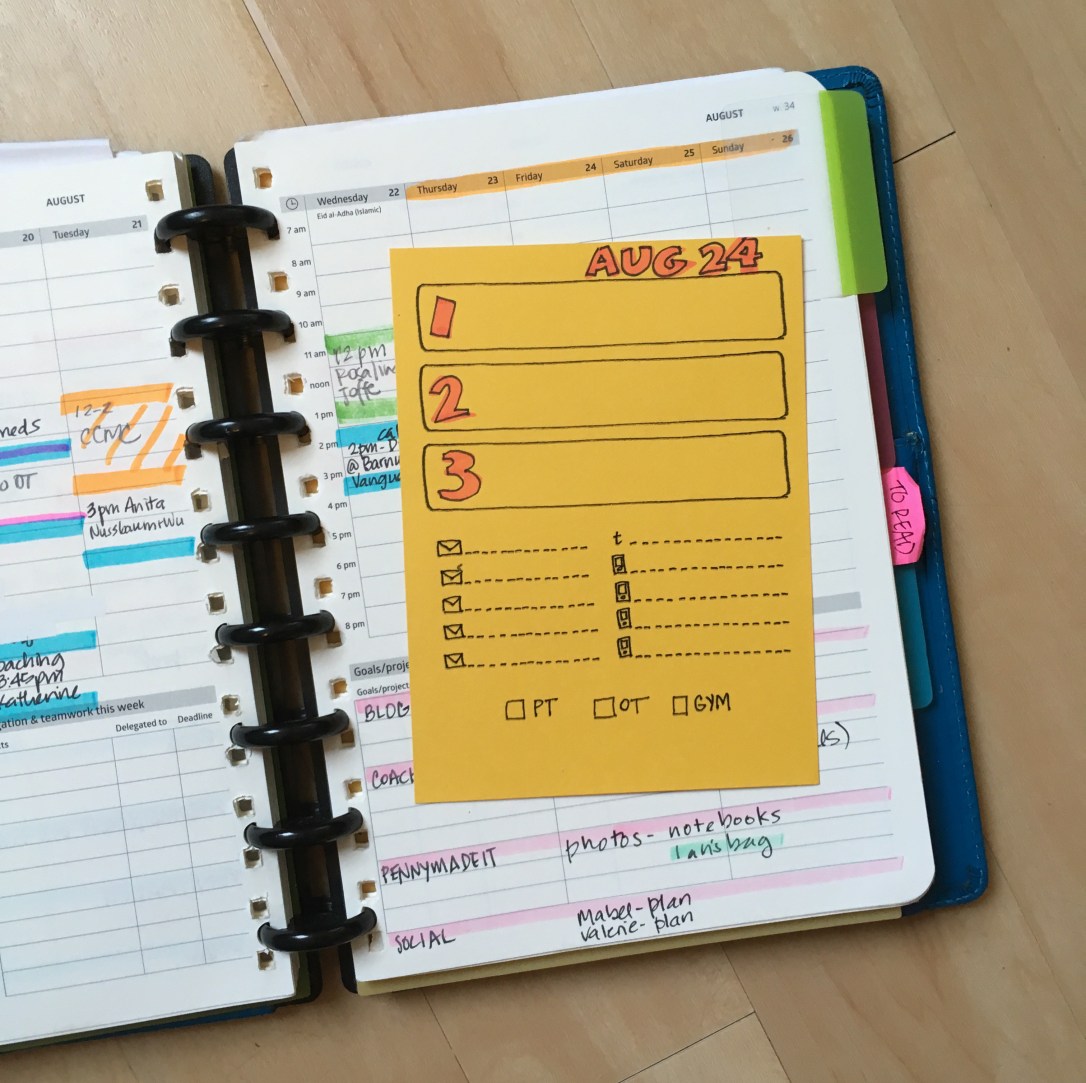 AUGUST
20 Tuesday 21
neds
o OT
12-2
CCMC
3pm Anita
Nussbaum+Wu
oaching
3:45pm
Katherine
gation & teamwork this week
ts Delegated to Deadline
AUGUST w. 34
Wednesday 22 Thursday 23 Friday 24 Saturday 25 Sunday 26
Eid al-Adha (Islamic)
7 am
8 am
9 am
10 am
11 am
noon
1 pm
2 pm
3 pm
4 pm
5 pm
6 pm
7 pm
8 pm
12pm
Rosaline
Joffe
2pm-
@Barn
Vangu
AUG 24
1
2
3
t
PT OT GYM
TO READ
Goals/proje
Goals/project
BLOG
COACH
PENNYMADEIT
photos - notebooks
bag
SOCIAL
Mabel-plan
Valerie-plan